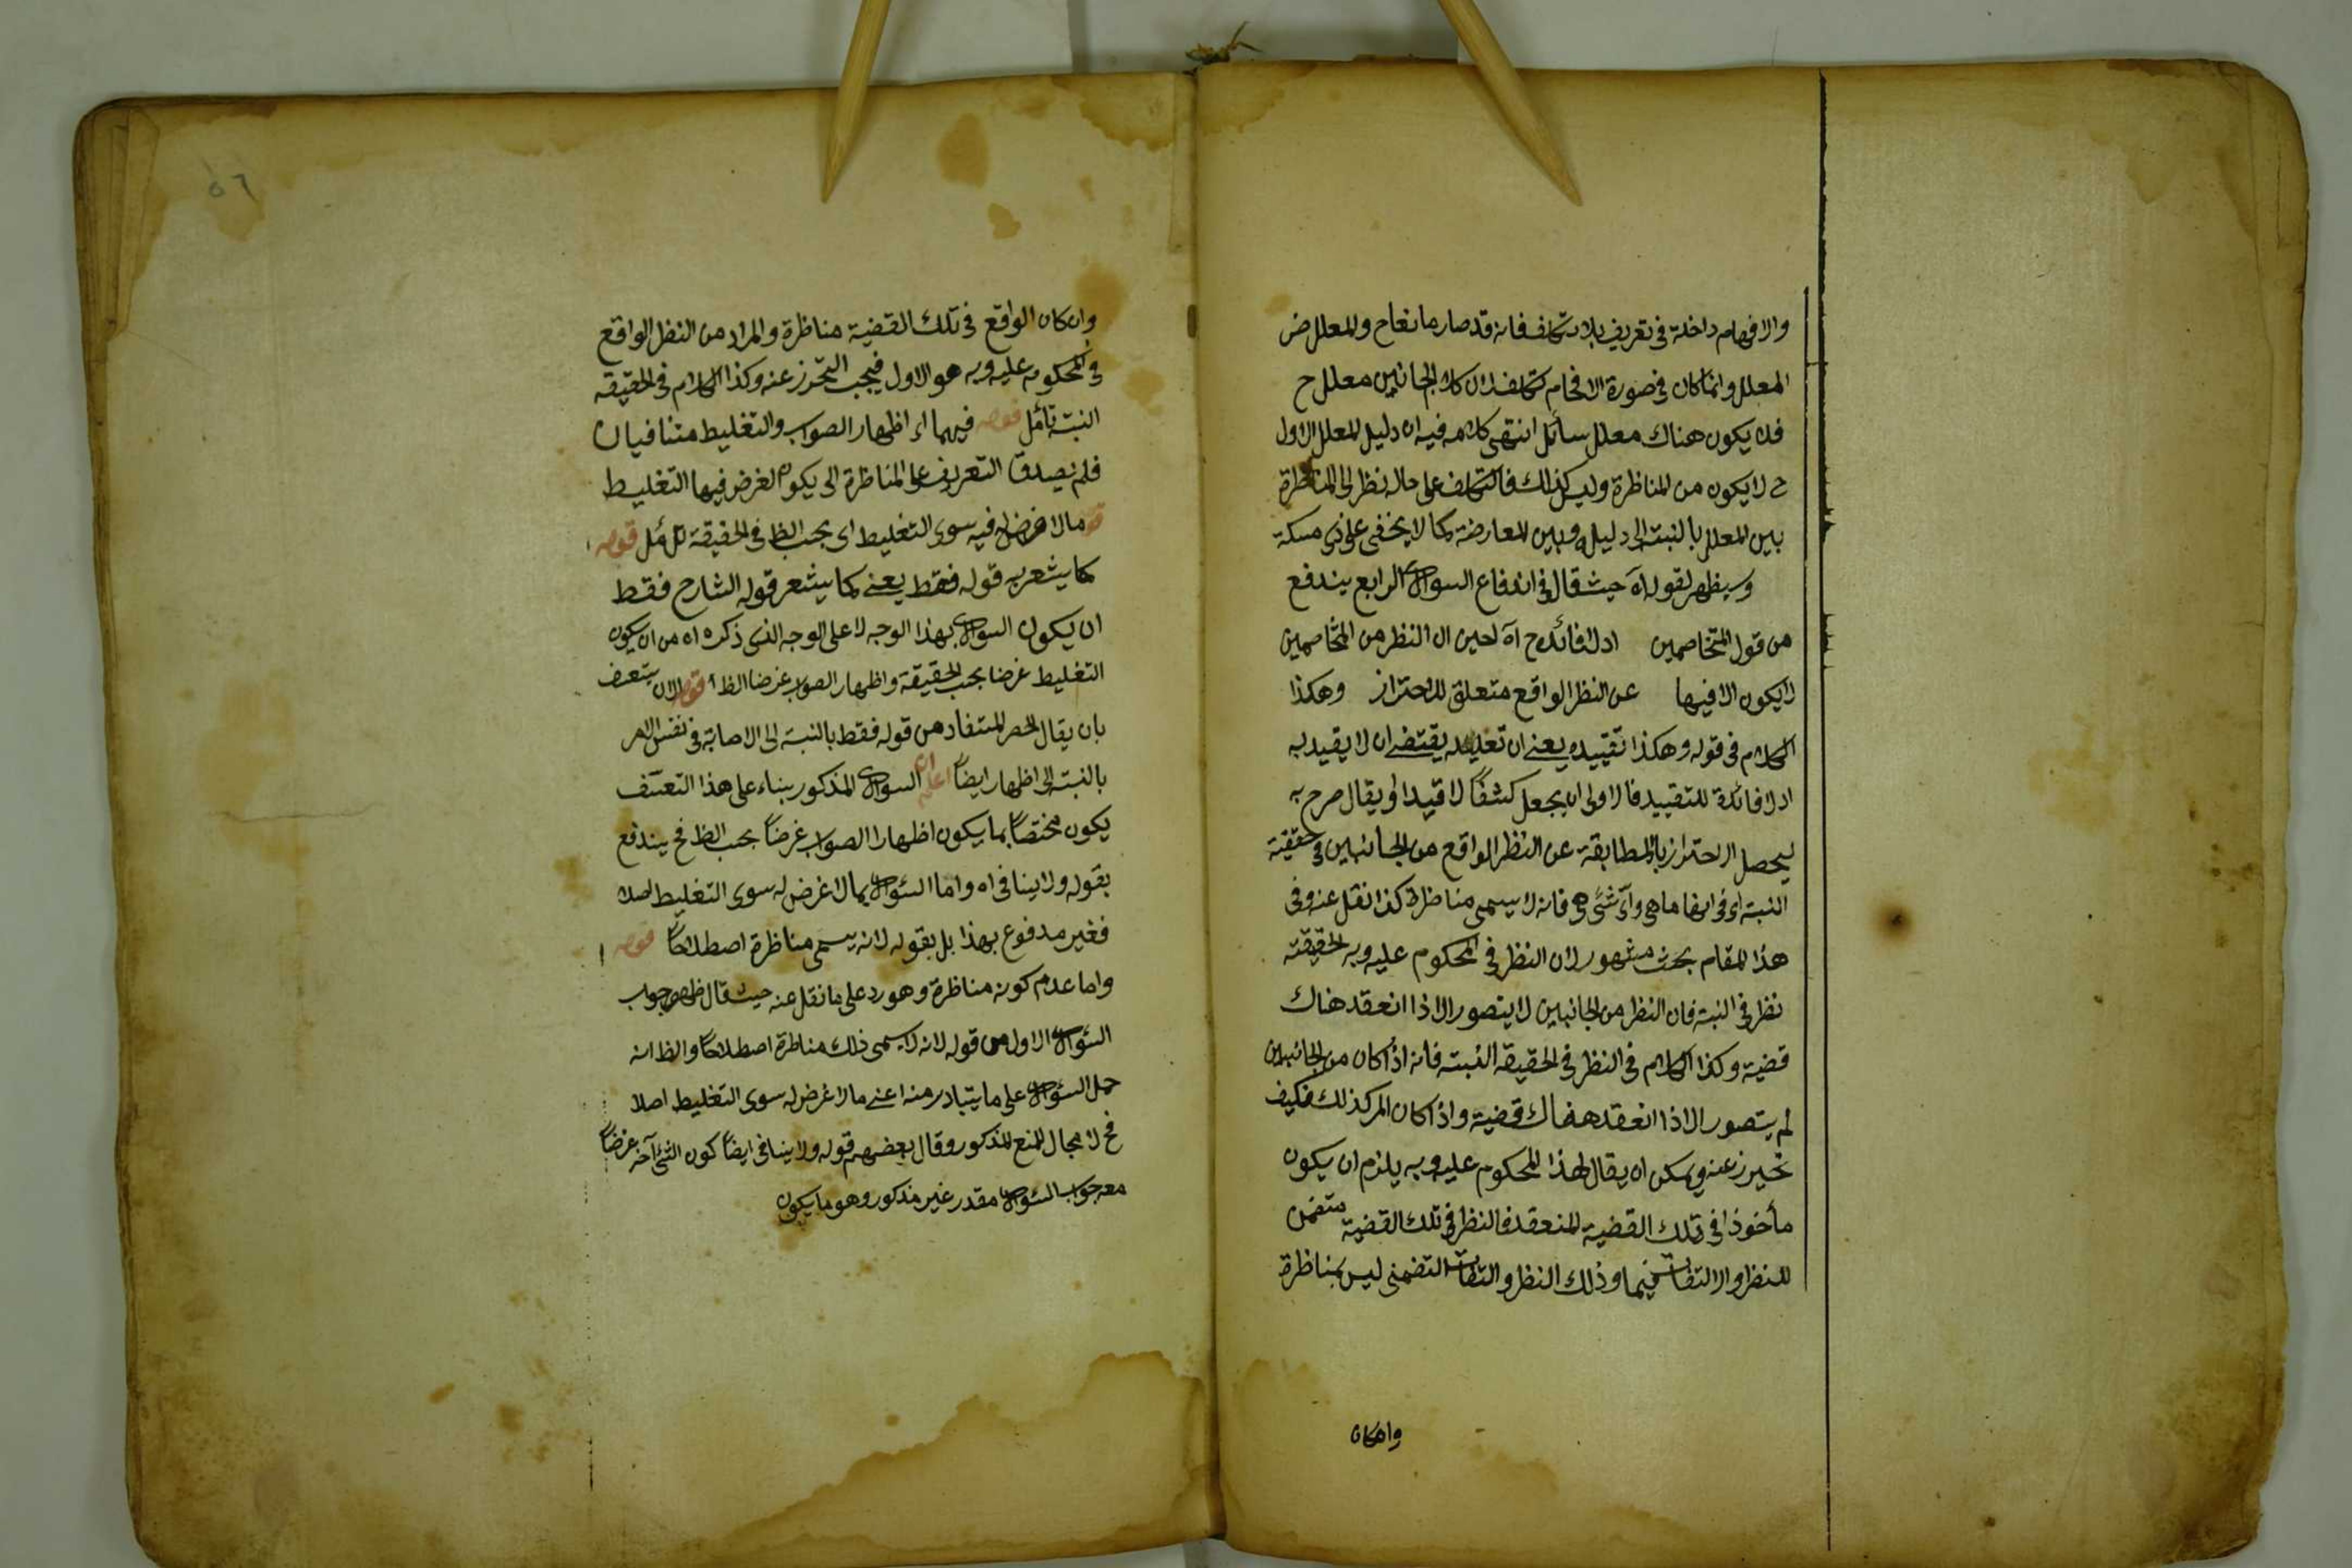 والافهام داخلة في تعريف بلا تكلف فانه قد صار مانعا ح والمعلل ض
المعلل وانما كان في صورة الافحام تكلف لان كلا الجانبين معلل ح
فلا يكون هناك معلل سائل انتهى كلامه فيه ان دليل المعلل الاول
ح لا يكون من المناظرة وليس كذلك فالتكلف على حاله نظر الى المناظرة
بين المعلل بالنسبة الى دليله وبين المعارضة كما لا يخفى على ذي مسكة
وسيظهر لقوله آه حيث قال في اندفاع السؤال الرابع يندفع
من قول المتخاصمين اذ لا فائدة ح آه لحين ان النظر من المتخاصمين
لا يكون الا فيها عن النظر الواقع متعلق للاحتراز وهكذا
الكلام في قوله وهكذا تقييده يعني ان تعليله يقتضي ان لا يقيد به
اذ لا فائدة للتقييد فالاولى ان يجعل كشفا لا قيدا او يقال صرح به
ليحصل الاحتراز بالمطابقة عن النظر الواقع من الجانبين في حقيقة
النسبة اى في انها ما هي واى شئ هي فانه لا يسمى مناظرة كذا نقل عنه وفي
هذا المقام بحث مشهور لان النظر في المحكوم عليه وبه الحقيقة
نظر في النسبة فان النظر من الجانبين لا يتصور الا اذا انعقد هناك
قضية وكذا الكلام في النظر في الحقيقة النسبة فانه اذا كان من الجانبين
لم يتصور الا اذا انعقد هناك قضية واذا كان الامر كذلك فكيف
تحيرز عنه ويمكن ان يقال لهذا المحكوم عليه وبه يلزم ان يكون
مأخوذا في تلك القضية المنعقد فالنظر في تلك القضية متضمن
للنظر والالتفات فيهما وذلك النظر والتفات التضمني ليس بمناظرة
وان كان
وان كان الواقع في تلك القضية مناظرة والمراد من النظر الواقع
في المحكوم عليه وبه هو الاول فيجب التحرز عنه وكذا الكلام في الحقيقة
النسبة تأمل قوله فيهما اى اظهار الصواب والتغليط متنافيان
فلم يصدق التعريف على المناظرة التي يكون الغرض فيها التغليط
قوله مالا غرض له فيه سوى التغليط اى بحسب الظ في الحقيقة تأمل قوله
كما يشعر به قوله فقط يعني كما يشعر قوله الشارح فقط
ان يكون السؤال بهذا الوجه لا على الوجه الذي ذكره اه من ان يكون
التغليط غرضا بحسب الحقيقة واظهار الصواب غرضا الظ قوله الا ان يتعسف
بان يقال الحصر المستفاد من قوله فقط بالنسبة الى الاصابة في نفس الامر
بالنسبة الى اظهار ايضاً السؤال المذكور بناء على هذا التعسف
يكون مختصاً بما يكون اظهار الصواب غرضاً بحسب الظ فح يندفع
بقوله ولا ينافي اه واما السؤال بما لا غرض له سوى التغليط اصلا
فغير مدفوع بهذا بل بقوله لانه يسمى مناظرة اصطلاحاً قوله
واما عدم كونه مناظرة وهو رد على ما نقل عنه حيث قال ظهر جواب
السؤال الاول من قوله لانه لا يسمى ذلك مناظرة اصطلاحاً والظ انه
حمل السؤال على ما يتبادر منه اعني ما لا غرض له سوى التغليط اصلا
فح لا مجال للمنع المذكور وقال بعضهم قوله ولا ينافي ايضاً كون الشئ آخر غرضاً
معه جواب السؤال مقدر غير مذكور وهو ما يكون
٥٦